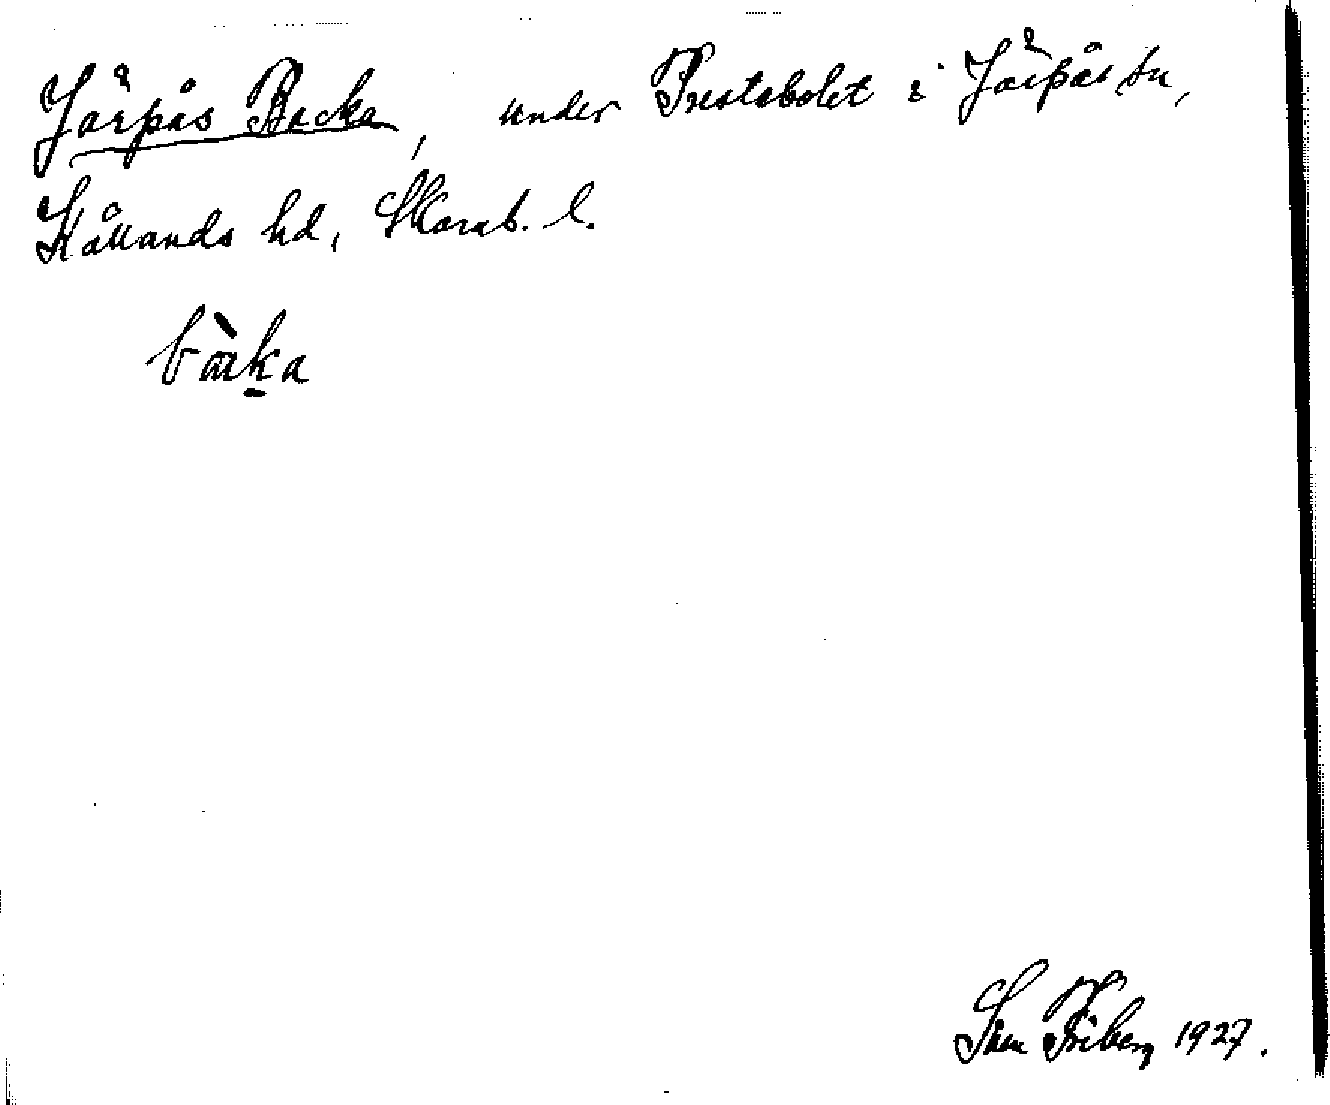 Järpås Backa, under Prestabolet i Järpås sn,
Kållands hd, Skarab. l.
bàka
Sven Friberg 1927.